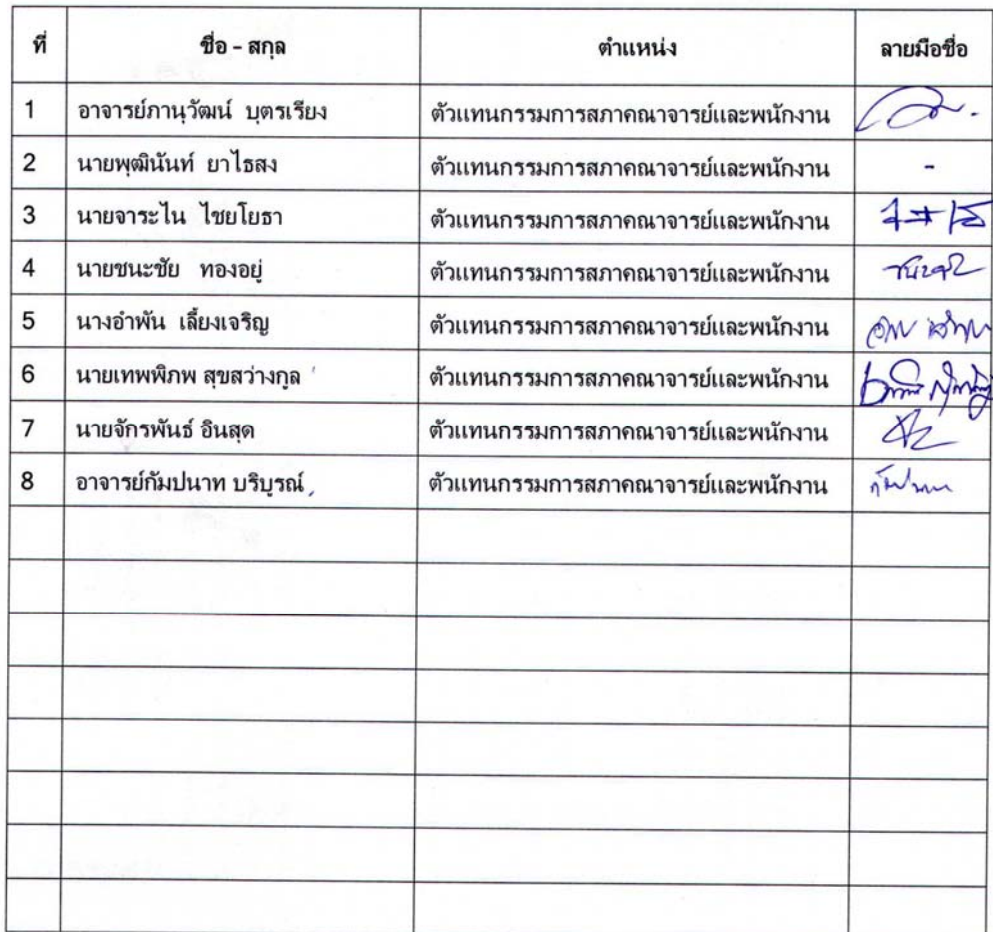 ที่ ชื่อ - สกุล ตำแหน่ง ลายมือชื่อ
1 อาจารย์ภานุวัฒน์ บุตรเรียง ตัวแทนกรรมการสภาคณาจารย์และพนักงาน
2 นายพุฒินันท์ ยาไธสง ตัวแทนกรรมการสภาคณาจารย์และพนักงาน -
3 นายจาระไน ไชยโยธา ตัวแทนกรรมการสภาคณาจารย์และพนักงาน
4 นายชนะชัย ทองอยู่ ตัวแทนกรรมการสภาคณาจารย์และพนักงาน
5 นางอำพัน เลี้ยงเจริญ ตัวแทนกรรมการสภาคณาจารย์และพนักงาน
6 นายเทพพิภพ สุขสว่างกูล ตัวแทนกรรมการสภาคณาจารย์และพนักงาน
7 นายจักรพันธ์ อินสุด ตัวแทนกรรมการสภาคณาจารย์และพนักงาน
8 อาจารย์กัมปนาท บริบูรณ์ ตัวแทนกรรมการสภาคณาจารย์และพนักงาน